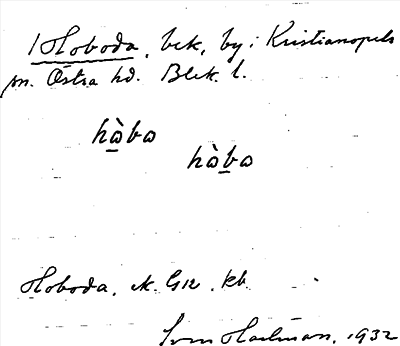 1 Hoboda, bek, by i Kristianopels
sn. Östra hd. Blek. l.
hòbo
hòbo
Hoboda. ek. G12. kb
Sven Hallman. 1932